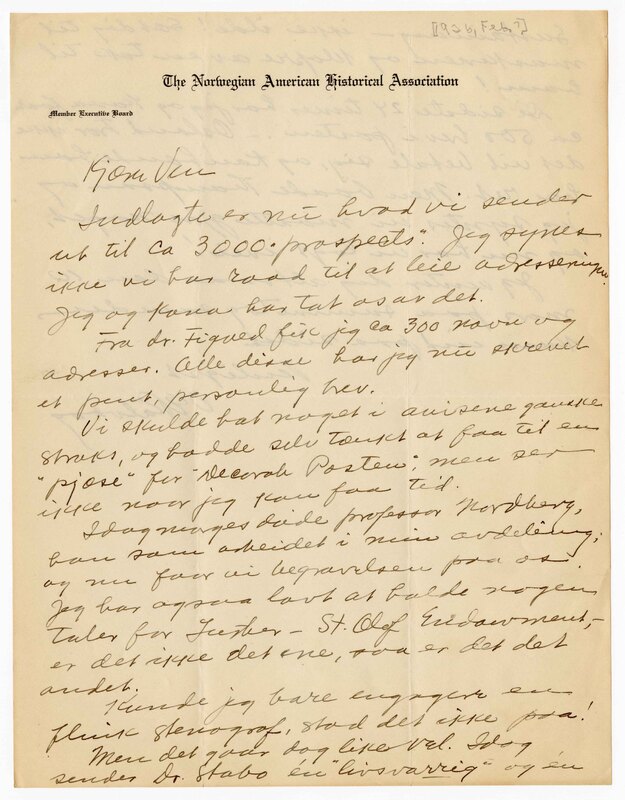 [1936, Feb?]
The Norwegian American Historical Association
Member Executive Board
Kjære Ven
Indlagte er nu hvad vi sender
ut til ca 3000 "prospects". Jeg synes
ikke vi har raad til at leie adressering.
Jeg og kona har tat os av det.
Fra dr. Figved fik jeg ca 300 navn og
adresser. Alle disse har jeg nu skrevet
et pent, personlig brev.
Vi skulde hat noget i avisene ganske
straks, og hadde selv tænkt at faa til en
"pjæse" for "Decorah Posten", men ser
ikke naar jeg kan faa tid.
Idag morges døde professor Nordberg,
han som arbeidet i min avdeling;
og nu faar vi begravelsen paa os.
Jeg har ogsaa lovt at holde nogen
taler for Luther – St. Olaf Endowment,–
er det ikke det ene, saa er det det
andet.
Kunde jeg bare engagere en
flink stenograf, stod det ikke paa!
Men det gaar dog likevel. Idag
sender Dr. Stabo én "livsvarrig" og én